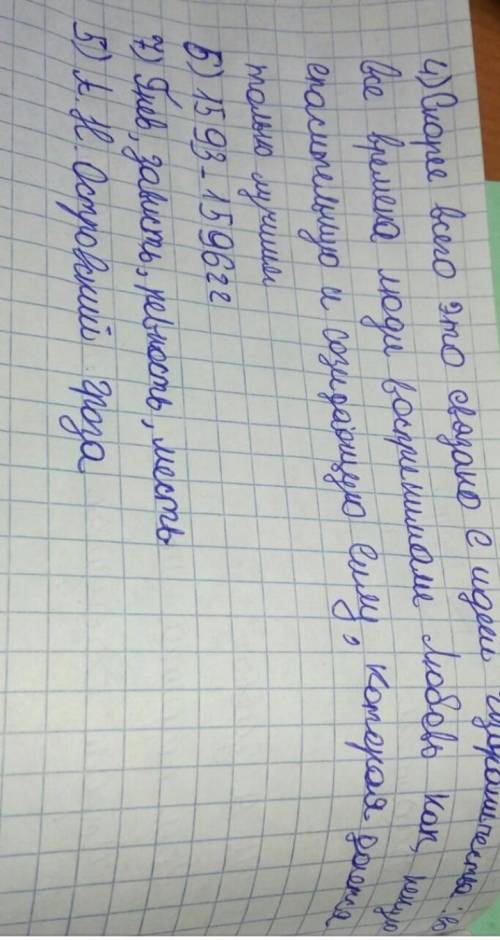 4) Скорее всего это связано с идеей избранничества: во
все времена люди воспринимали любовь как, некую
спасительную и созидающую силу, которая дается
только лучшим
6) 1593-1596гг
7) Гнев, зависть, ревность, месть
5) А. Н. Островский гроза